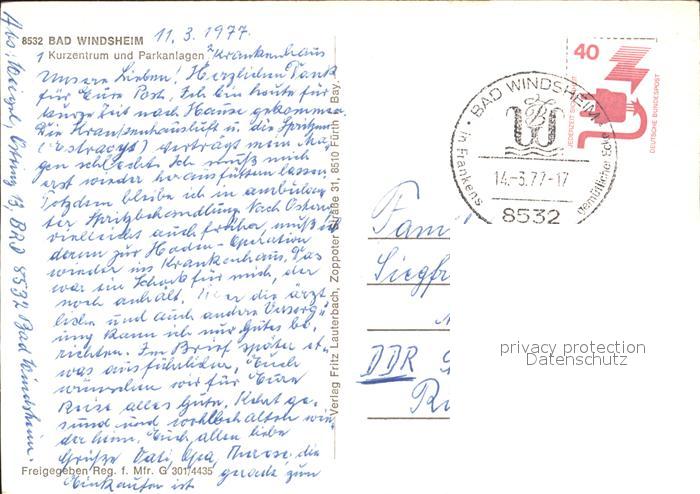 8532 BAD WINDSHEIM 11.3.1977.
1 Kurzentrum und Parkanlagen 2 Krankenhaus
Unsere Lieben! Herzlichen Dank
für Eure Post. Ich bin heute für
kurze Zeit nach Hause gekommen.
Die Krankenhausluft u. die Spritzen
(Estracyt) verträgt mein Ma-
gen schlecht. Ich muß mich
erst wieder herausfüttern lassen.
Trotzdem bleibe ich in ambulan-
ter Spritzbehandlung. Nach Ostern
vielleicht auch früher, muß ich
dann zur Hoden-Operation
wieder ins Krankenhaus. Das
war ein Schock für mich, der
noch anhält. über die ärzt-
liche und auch andere Versorg-
ung kann ich nur Gutes be-
richten. Im Brief später et-
was ausführlicher. Euch
wünschen wir für Eure
Reise alles Gute. Kehrt ge-
sund und wohlbehalten wie-
der heim. Euch allen liebe
Grüße Vati, Opa, die
gerade zum
Einkaufen ist
Freigegeben Reg. f. Mfr. G 301/4435
Abs: Weigel, 13, BRD 8532 Bad Windsheim.
Verlag Fritz Lauterbach, Zoppoter Straße 31, 8510 Fürth / Bay.
BAD WINDSHEIM
in Frankens gemütlicher Ecke
14.-3.77-17
8532
40
JEDERZEIT SICHERHEIT
DEUTSCHE BUNDESPOST
Fami
Siegfr
DDR
privacy protection
Datenschutz